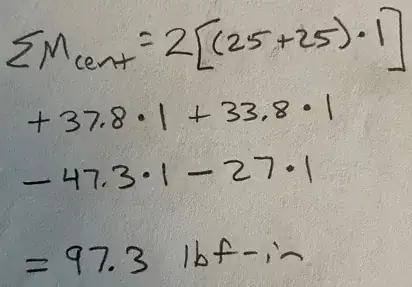 ΣM_cent = 2[(25+25)·1]
+37.8·1 + 33.8·1
-47.3·1 - 27·1
= 97.3 lbf-in